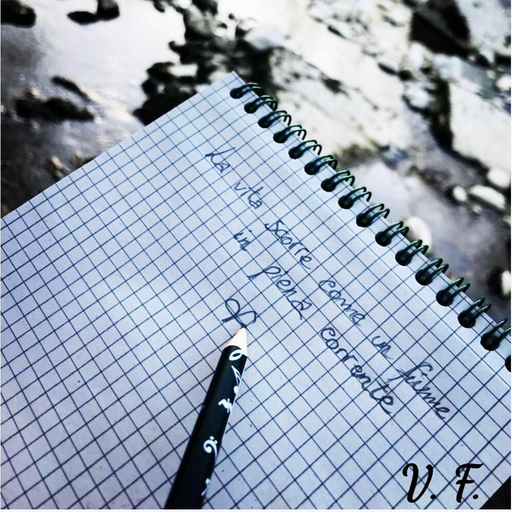 La vita scorre come un fiume
in piena corrente
V. F.